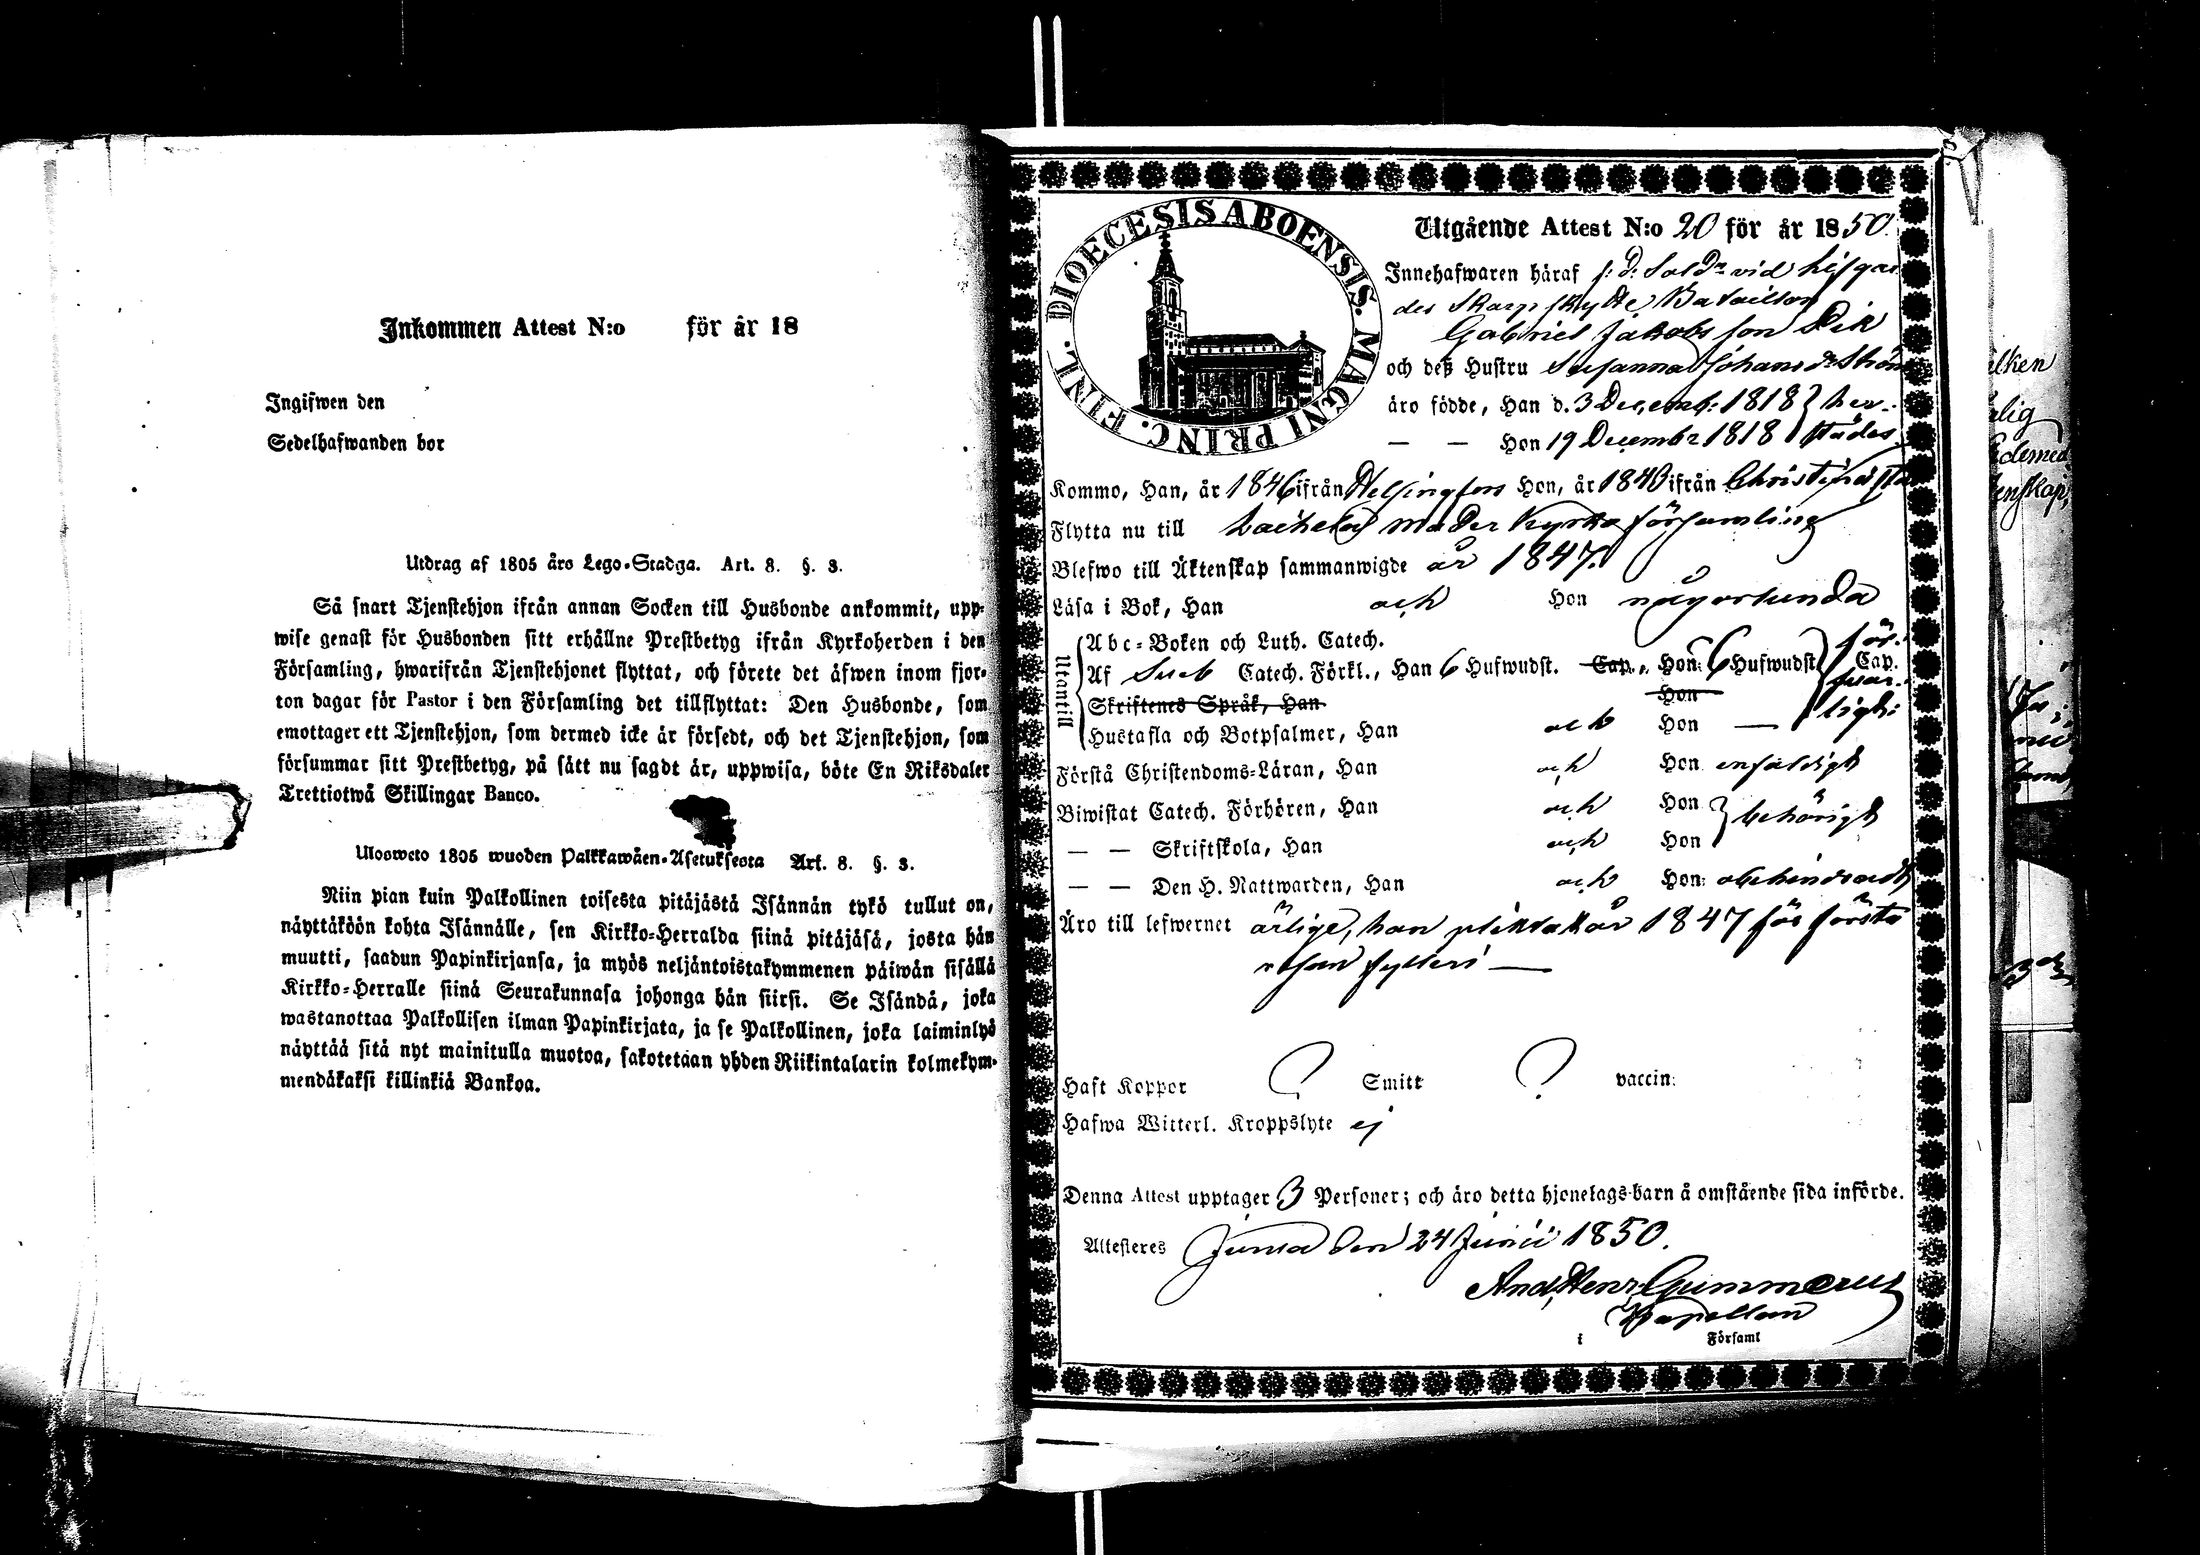 Inkommen Attest N:o för år 18
Ingifwen den
Sedelhafwanden bor
Utdrag af 1805 års Lego-Stadga. Art. 8. §. 3.
Så snart Tjenstehjon ifrån annan Socken till Husbonde ankommit, upp-
wise genast för Husbonden sitt erhållne Prestbetyg ifrån Kyrkoherden i den
Församling, hwarifrån Tjenstehjonet flyttat, och förete det äfwen inom fjor-
ton dagar för Pastor i den Församling det tillflyttat: Den Husbonde, som
emottager ett Tjenstehjon, som dermed icke är försedt, och det Tjenstehjon, som
försummar sitt Prestbetyg, på sätt nu sagdt är, uppwisa, böte En Riksdaler
Trettiotwå Skillingar Banco.
Ulosweto 1805 wuoden Palkkawäen-Asetuksesta Art. 8. §. 3.
Niin pian kuin Palkollinen toisesta pitäjästä Isännän tykö tullut on,
näyttäköön kohta Isännälle, sen Kirkko-Herralda siinä pitäjäsä, josta hän
muutti, saadun Papinkirjansa, ja myös neljäntoistakymmenen päiwän sisällä
Kirkko-Herralle siinä Seurakunnasa johonga hän siirsi. Se Isändä, joka
wastanottaa Palkollisen ilman Papinkirjata, ja se Palkollinen, joka laiminlyö
näyttää sitä nyt mainitulla muotoa, sakotetaan yhden Riikintalarin kolmekym-
mendäkaksi killinkiä Bankoa.
DIOECESIS ABOENSIS. MAGNI PRINC. FINL.
Utgående Attest N:o 20 för år 1850.
Innehafwaren häraf f: d: Soldn vid Lifgar
des Skarpskytte Batailion
Gabriel Jakobsson Dik
och deß Hustru Susanna Johansdr Ström
äro födde, Han d. 3 Decemb: 1818 } här-
— — Hon 19 Decembr 1818 städes
Kommo, Han, år 1846 ifrån Helsingfors Hon, år 1840 ifrån Christinæsta
Flytta nu till Laihela moder Kyrko församling
Blefwo till Äktenskap sammanwigde år 1847.
Läsa i Bok, Han och Hon någorlunda
Utantill
Abc-Boken och Luth. Catech.
Af Sveb Catech. Förkl., Han 6 Hufwudst. Cap., Hon: 6 Hufwudst Cap. för-
Skriftenes Språk, Han Hon svar-
Hustafla och Botpsalmer, Han och Hon — ligt:
Förstå Christendoms-Läran, Han och Hon enfaldigt
Biwistat Catech. Förhören, Han och Hon } behörigt
— — Skriftskola, Han och Hon
— — Den H. Nattwarden, Han och Hon: obehindradt
Äro till lefwernet ärlige, han pliktat år 1847 för första
resan fylleri —
Haft Koppor ? Smitt ? vaccin:
Hafwa Witterl. Kroppslyte ej
Denna Attest upptager 3 Personer; och äro detta hjonelags-barn å omstående sida införde.
Attesteres Jurva den 24 Junii 1850.
And. Henr. Gummerus
Kapellan
i Församl